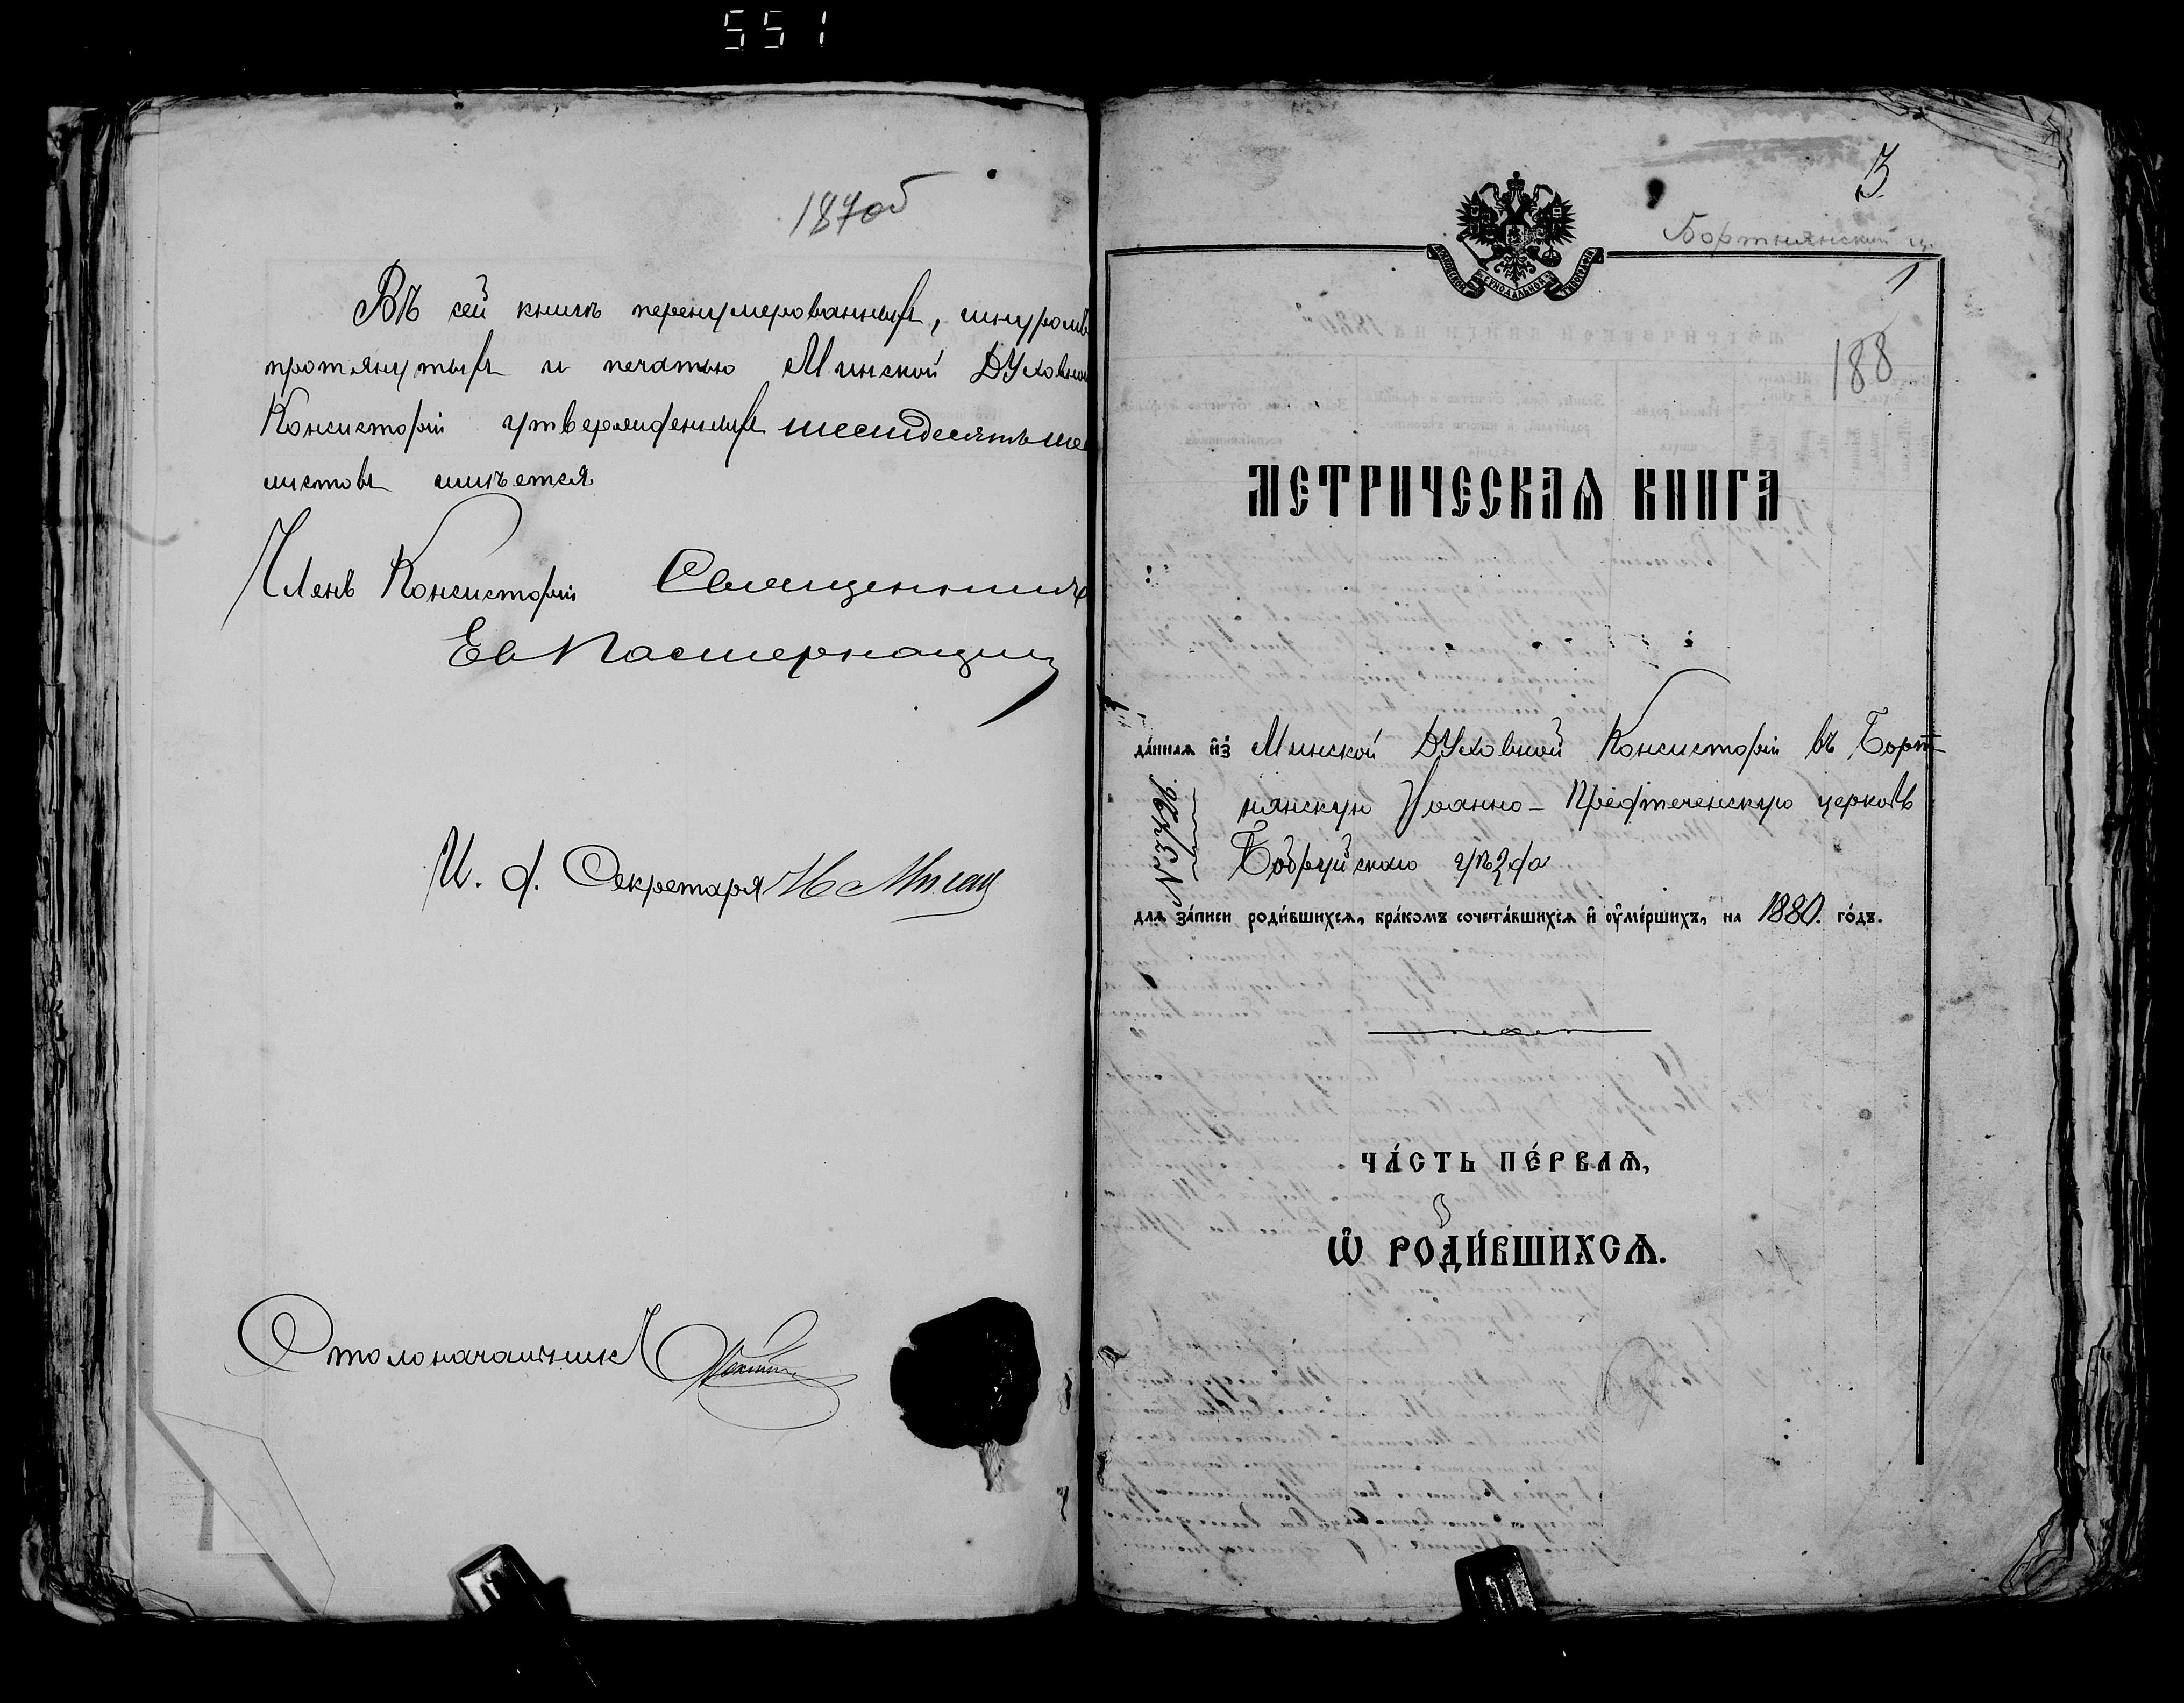 551
187об
Въ сей книгѣ перенумерованныхъ, шнуромъ
протянутыхъ и печатью Минской Духовной
Консисторіи утвержденныхъ шестьдесятъ ше
листовъ имѣется
Членъ Консисторіи Священникъ
Ев Пастернацкій
И. д. Секретаря
Столоначальникъ
3
Бортнянский ц.
1
МОСКОВСКОЙ СУНОДАЛЬНОЙ ТИПОГРАФІИ
188
МЕТРИЧЕСКАѦ КНИГА
да́ннаѧ и҆з̾ Минской Духовной Консисторіи въ Борт-
нянскую Іоанно-Предтеченскую церковь
Бобруйскаго уѣзда
№ 3796
длѧ за́писи роди́вшихсѧ, бра́комъ сочета́вшихсѧ и҆ ᲂу҆ме́ршихъ, на 1880. го́дъ.
ЧА́СТЬ ПЕ́РВАѦ,
Ѽ РОДИ́ВШИХСѦ.